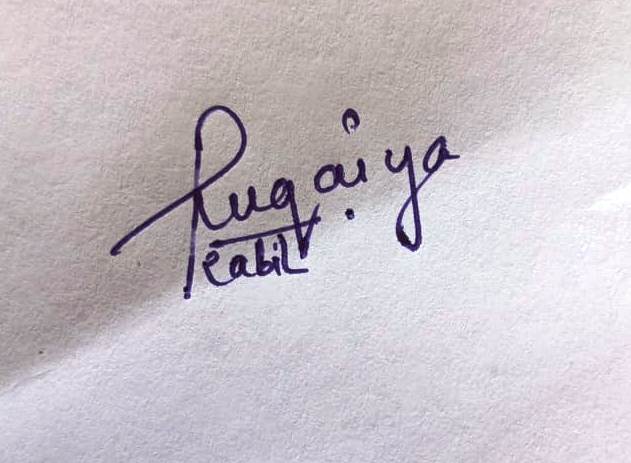 Ruqaiya
eabil